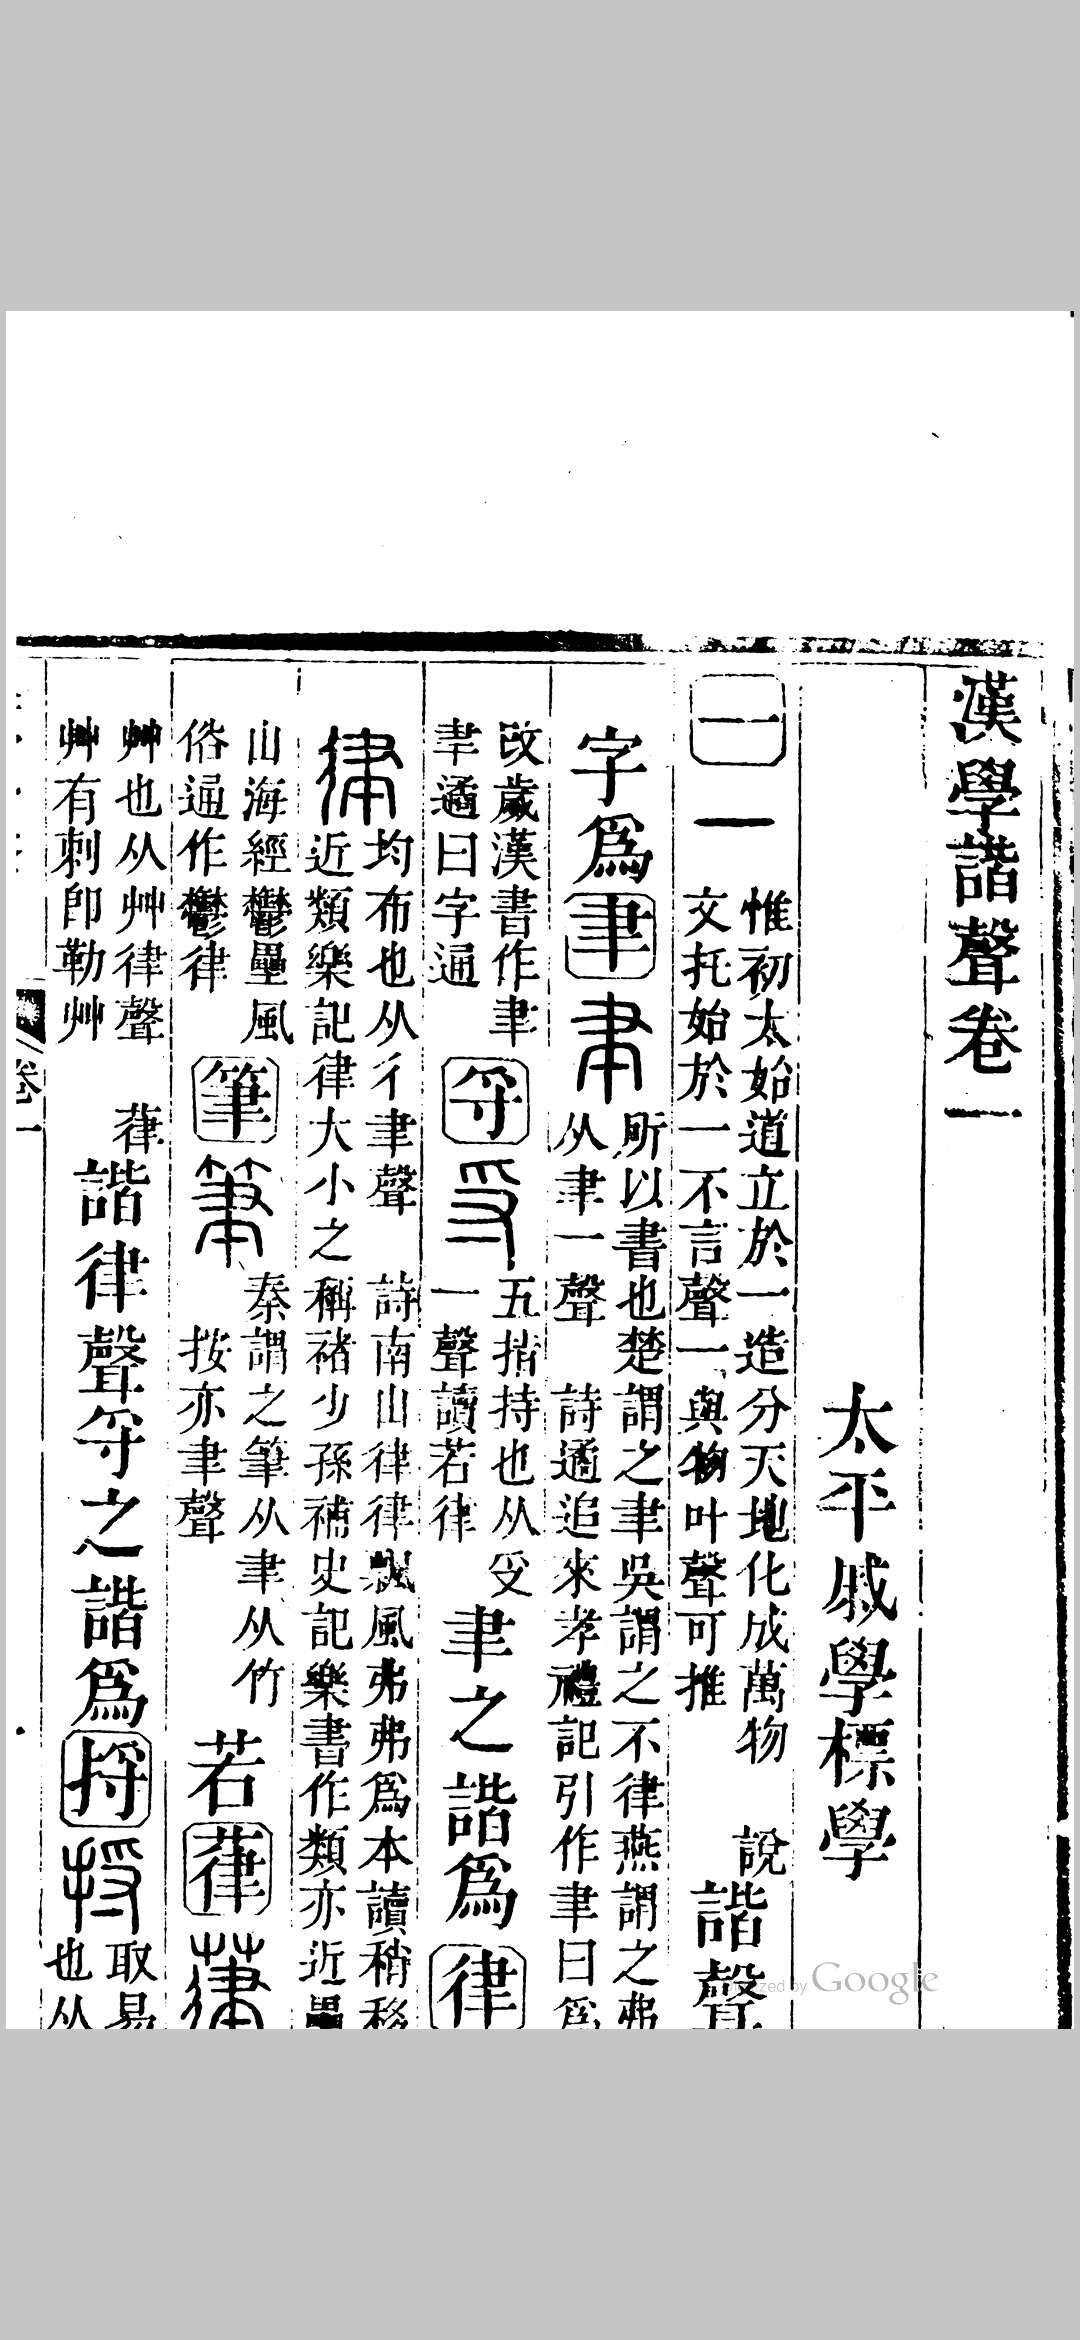 漢學諧聲卷一
太平戚學標學
一 一 惟初太始道立於一造分天地化成萬物 說
文托始於一不言聲一與物叶聲可推 諧聲
字爲聿 聿 所以書也楚謂之聿吳謂之不律燕謂之弗
从聿一聲 詩遹追來孝禮記引作聿曰爲
改歲漢書作聿
聿遹曰字通
寽 寽 五指持也从受
一聲讀若律
聿之諧爲律
律 均布也从彳聿聲 詩南山律律飄風弗弗爲本讀稍移
近類樂記律大小之稱褚少孫補史記樂書作類亦近壘
山海經鬱壘風
俗通作鬱律
筆 筆 秦謂之筆从聿从竹
按亦聿聲
若葎 葎
艸也从艸律聲 葎
艸有刺卽勒艸
諧律聲寽之諧爲捋 捋 取易
也从
卷一
Google